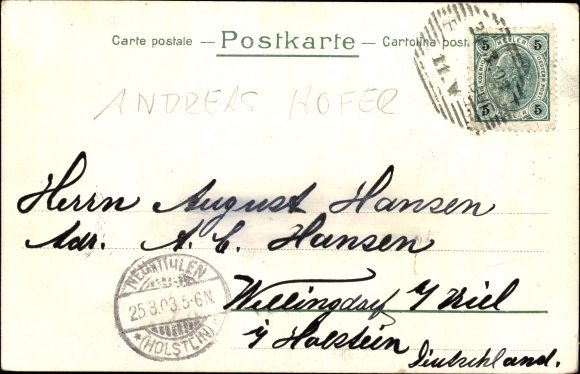 Carte postale — Postkarte — Cartolina post
5 HELLER 5
5 5
ANDREAS HOFER
Herrn August Hansen
Adr. A. C. Hansen
NEUMÜHLEN
25.8.03.5-6N.
* (HOLSTEIN)
Wellingdorf b/Kiel
i/Holstein
Deutschland.